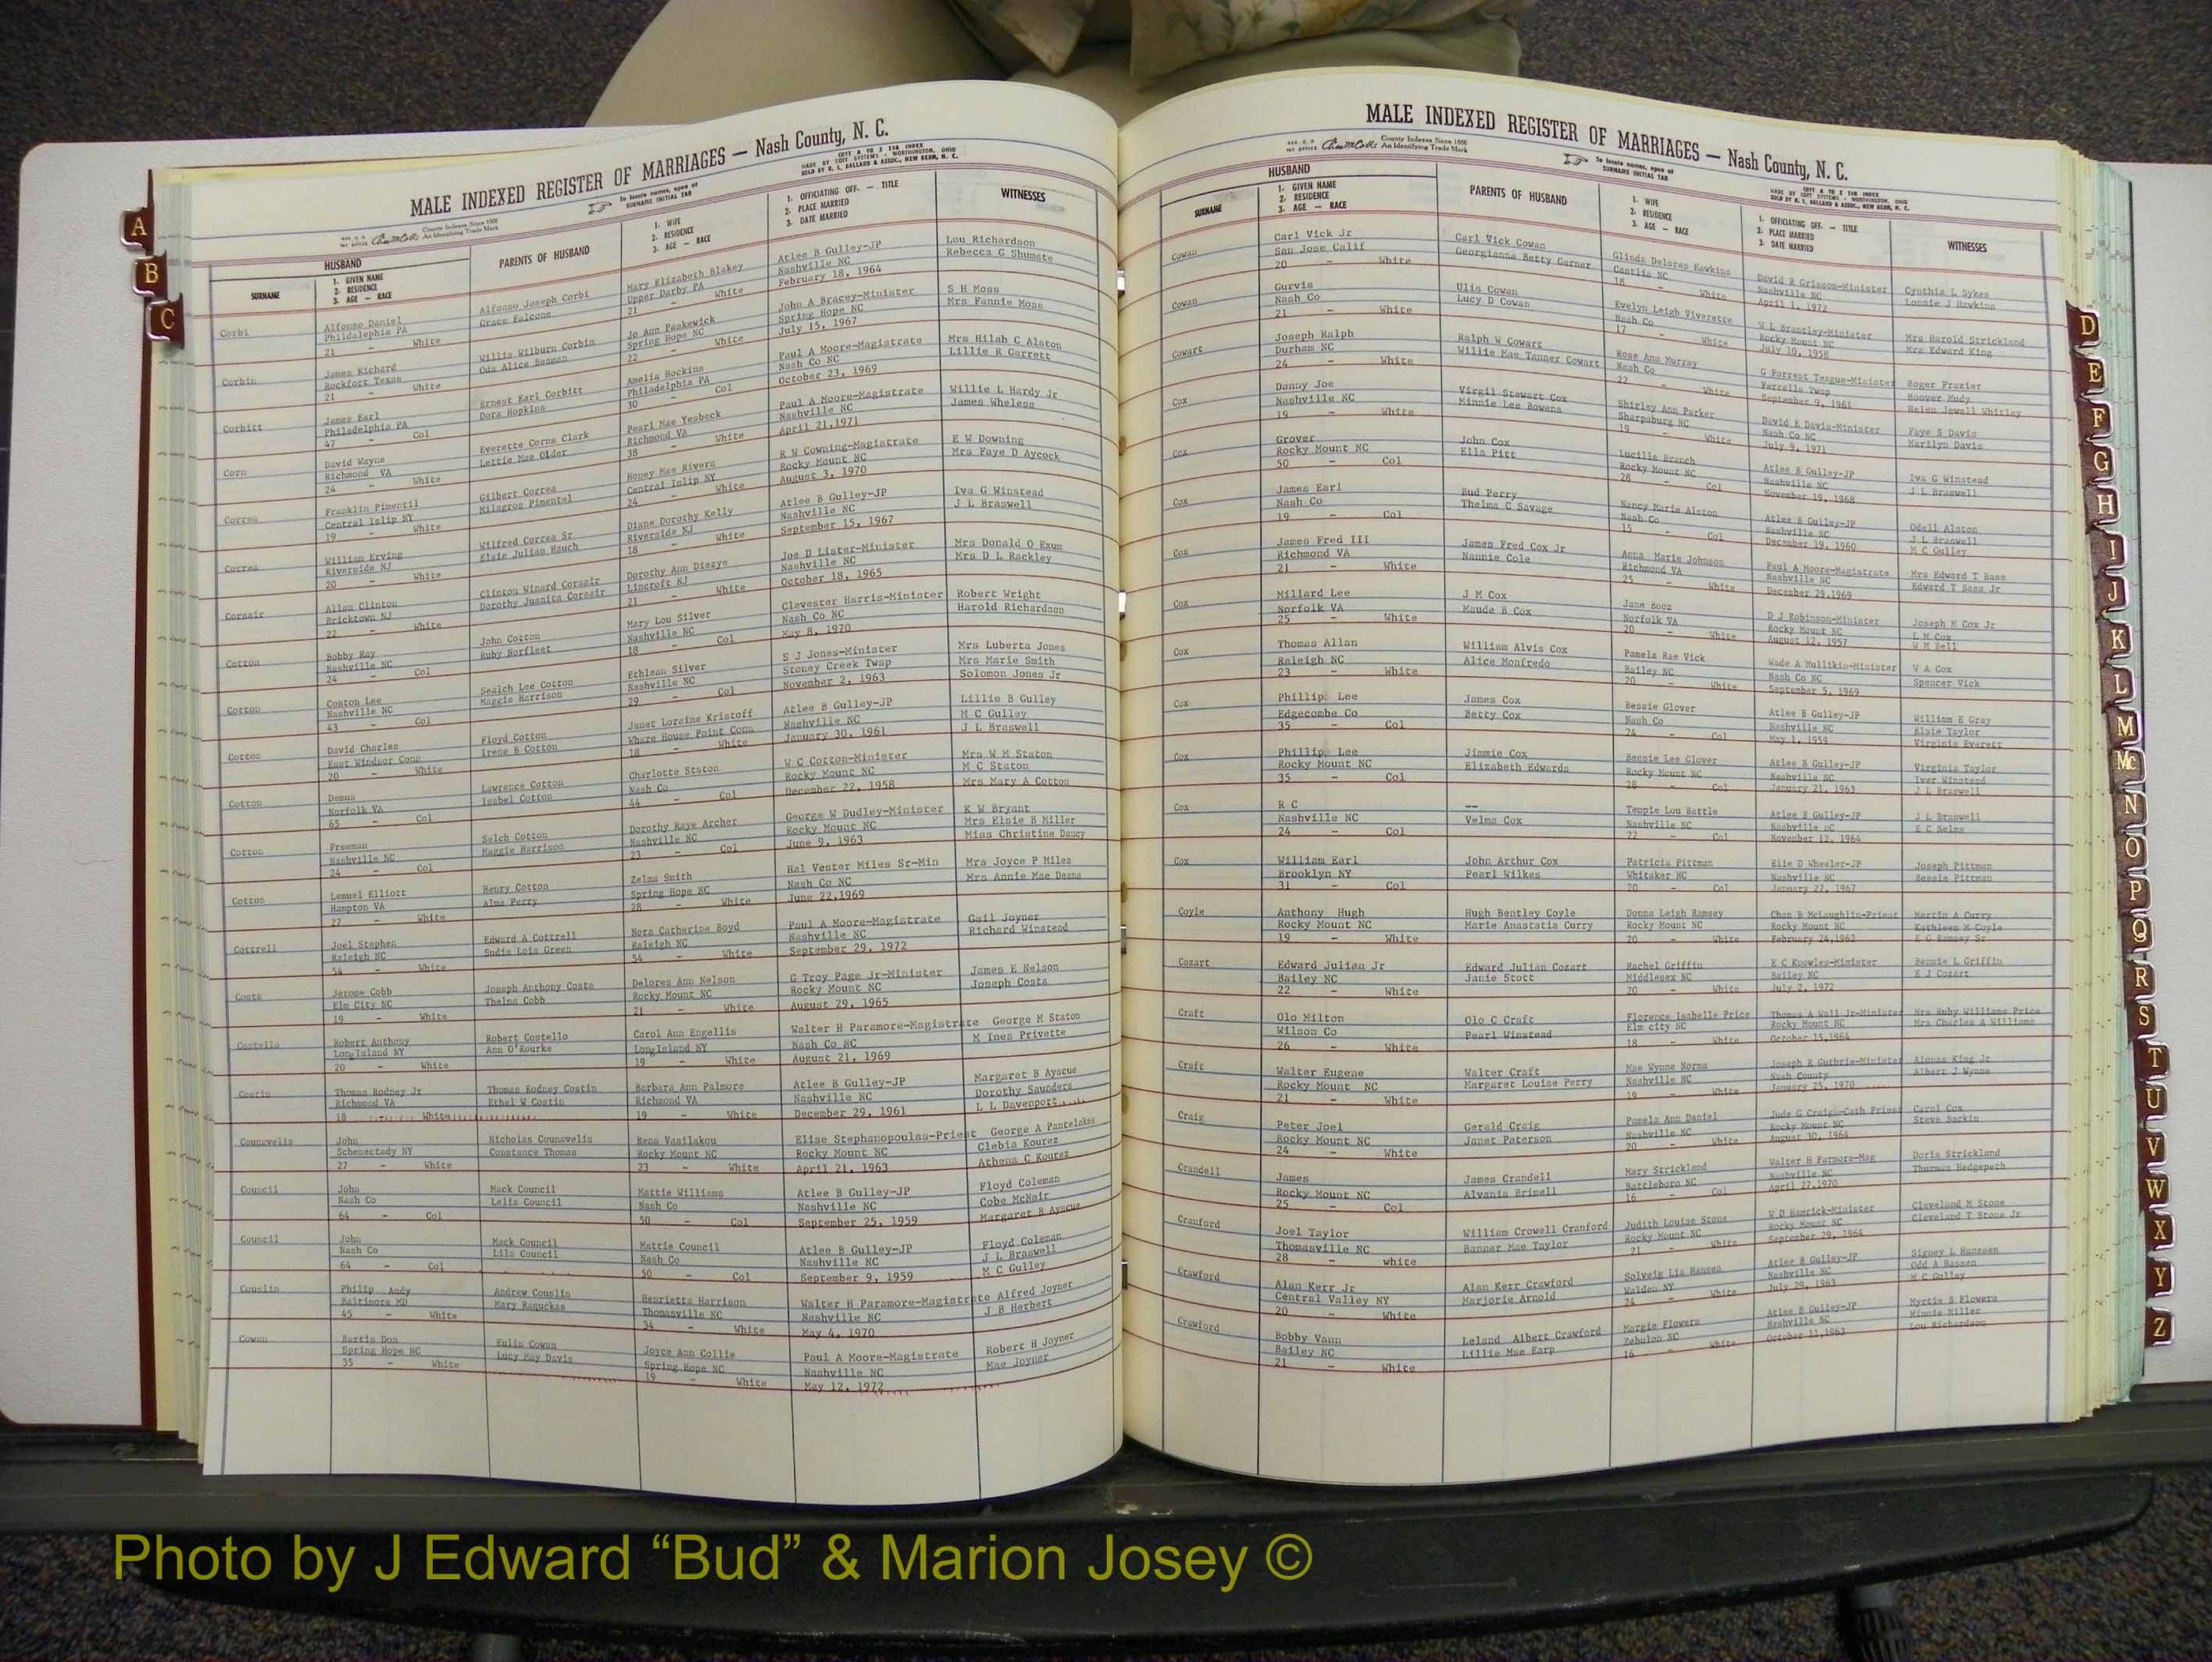 MALE INDEXED REGISTER OF MARRIAGES — Nash County, N. C.
County Indexes Since 1888
An Identifying Trade Mark
To locate names, open at
SURNAME INITIAL TAB
COTT A TO Z TAB INDEX
MADE BY COTT SYSTEMS - WORTHINGTON, OHIO
SOLD BY R. L. BALLARD & ASSOC., NEW BERN, N. C.
HUSBAND
SURNAME
1. GIVEN NAME
2. RESIDENCE
3. AGE — RACE
PARENTS OF HUSBAND
1. WIFE
2. RESIDENCE
3. AGE — RACE
1. OFFICIATING OFF. — TITLE
2. PLACE MARRIED
3. DATE MARRIED
WITNESSES
Corbi Alfonso Daniel Alfonso Joseph Corbi Mary Elizabeth Blakey Atlee B Gulley-JP Lou Richardson
Philadelphia PA Grace Falcone Upper Darby PA Nashville NC Rebecca G Shumate
21 - White 21 - White February 18, 1964
Corbin James Richard Willis Wilburn Corbin Jo Ann Paskewick John A Bracey-Minister S H Moss
Rockfort Texas Oda Alice Beaman Spring Hope NC Spring Hope NC Mrs Fannie Moss
21 - White 22 - White July 15, 1967
Corbitt James Earl Ernest Earl Corbitt Amelia Hockins Paul A Moore-Magistrate Mrs Hilah C Alston
Philadelphia PA Dora Hopkins Philadelphia PA Nash Co NC Lillie R Garrett
47 - Col 30 - Col October 23, 1969
Corn David Wayne Everette Corns Clark Pearl Mae Yesbeck Paul A Moore-Magistrate Willie L Hardy Jr
Richmond VA Lettie Mae Older Richmond VA Nashville NC James Wheless
24 - White 38 - White April 21,1971
Correa Franklin Pimentil Gilbert Correa Honey Mae Rivera R W Cowning-Magistrate E W Downing
Central Islip NY Milagros Pimentel Central Islip NY Rocky Mount NC Mrs Faye D Aycock
19 - White 24 - White August 3, 1970
Correa William Erving Wilfred Correa Sr Diane Dorothy Kelly Atlee B Gulley-JP Iva G Winstead
Riverside NJ Elsie Julian Hauch Riverside NJ Nashville NC J L Braswell
20 - White 18 - White September 15, 1967
Corsair Allan Clinton Clinton Winard Corsair Dorothy Ann Diezys Joe D Lister-Minister Mrs Donald O Exum
Bricktown NJ Dorothy Juanita Corsair Lincroft NJ Nashville NC Mrs D L Rackley
22 - White 21 - White October 18, 1965
Cotton Bobby Ray John Cotton Mary Lou Silver Clevester Harris-Minister Robert Wright
Nashville NC Ruby Norfleet Nashville NC Nash Co NC Harold Richardson
24 - Col 18 - Col May 8, 1970
Cotton Coston Lee Sealch Lee Cotton Ethlean Silver S J Jones-Minister Mrs Luberta Jones
Nashville NC Maggie Harrison Nashville NC Stoney Creek Twsp Mrs Marie Smith
43 - Col 29 - Col November 2, 1963 Solomon Jones Jr
Cotton David Charles Floyd Cotton Janet Loraine Kristoff Atlee B Gulley-JP Lillie B Gulley
East Windsor Conn Irene B Cotton Whare House Point Conn Nashville NC M C Gulley
20 - White 18 - White January 30, 1961 J L Braswell
Cotton Demus Lawrence Cotton Charlotte Staton W C Cotton-Minister Mrs W M Staton
Norfolk VA Isabel Cotton Nash Co Rocky Mount NC M C Staton
65 - Col 44 - Col December 22, 1958 Mrs Mary A Cotton
Cotton Freeman Selch Cotton Dorothy Raye Archer George W Dudley-Minister K W Bryant
Nashville NC Maggie Harrison Nashville NC Rocky Mount NC Mrs Elsie B Miller
24 - Col 23 - Col June 9, 1963 Miss Christine Dancy
Cotton Lemuel Elliott Henry Cotton Zelma Smith Hal Vester Miles Sr-Min Mrs Joyce P Miles
Hampton VA Alma Perry Spring Hope NC Nash Co NC Mrs Annie Mae Deans
27 - White 28 - White June 22,1969
Cottrell Joel Stephen Edward A Cottrell Nora Catherine Boyd Paul A Moore-Magistrate Gail Joyner
Raleigh NC Sudie Lois Green Raleigh NC Nashville NC Richard Winstead
54 - White 54 - White September 29, 1972
Costa Jerome Cobb Joseph Anthony Costa Delores Ann Nelson G Troy Page Jr-Minister James E Nelson
Elm City NC Thelma Cobb Rocky Mount NC Rocky Mount NC Joseph Costa
19 - White 21 - White August 29, 1965
Costello Robert Anthony Robert Costello Carol Ann Engellis Walter H Paramore-Magistrate George M Staton
Long Island NY Ann O'Rourke Long Island NY Nash Co NC M Ines Privette
20 - White 19 - White August 21, 1969
Costin Thomas Rodney Jr Thomas Rodney Costin Barbara Ann Palmore Atlee B Gulley-JP Margaret B Ayscue
Richmond VA Ethel W Costin Richmond VA Nashville NC Dorothy Saunders
18 White 19 - White December 29, 1961 L L Davenport
Counavelis John Nicholas Counavelis Rena Vasilakou Elise Stephanopoulas-Priest George A Pantelakes
Schenectady NY Constance Thomas Rocky Mount NC Rocky Mount NC Clebia Kourez
27 - White 23 - White April 21, 1963 Athena C Kourez
Council John Mack Council Mattie Williams Atlee B Gulley-JP Floyd Coleman
Nash Co Lelia Council Nash Co Nashville NC Cobe McNair
64 - Col 50 - Col September 25, 1959 Margaret B Ayscue
Council John Mack Council Mattie Council Atlee B Gulley-JP Floyd Coleman
Nash Co Lila Council Nash Co Nashville NC J L Braswell
64 - Col 50 - Col September 9, 1959 M C Gulley
Couslin Philip Andy Andrew Couslin Henrietta Harrison Walter H Paramore-Magistrate Alfred Joyner
Baltimore MD Mary Raguckas Thomasville NC Nashville NC J B Herbert
45 - White 34 - White May 4, 1970
Cowan Bertis Don Eulis Cowan Joyce Ann Collie Paul A Moore-Magistrate Robert H Joyner
Spring Hope NC Lucy May Davis Spring Hope NC Nashville NC Mae Joyner
35 - White 19 - White May 12, 1972
MALE INDEXED REGISTER OF MARRIAGES — Nash County, N. C.
County Indexes Since 1888
An Identifying Trade Mark
To locate names, open at
SURNAME INITIAL TAB
COTT A TO Z TAB INDEX
MADE BY COTT SYSTEMS - WORTHINGTON, OHIO
SOLD BY R. L. BALLARD & ASSOC., NEW BERN, N. C.
HUSBAND
SURNAME
1. GIVEN NAME
2. RESIDENCE
3. AGE — RACE
PARENTS OF HUSBAND
1. WIFE
2. RESIDENCE
3. AGE — RACE
1. OFFICIATING OFF. — TITLE
2. PLACE MARRIED
3. DATE MARRIED
WITNESSES
Cowan Carl Vick Jr Carl Vick Cowan Glinda Delores Hawkins David R Grissom-Minister Cynthia L Sykes
San Jose Calif Georgianna Betty Garner Castlia NC Nashville NC Lonnie J Hawkins
20 - White 18 - White April 1, 1972
Cowan Gurvis Ulis Cowan Evelyn Leigh Viverette W L Brantley-Minister Mrs Harold Strickland
Nash Co Lucy D Cowan Nash Co Rocky Mount NC Mrs Edward King
21 - White 17 - White July 19, 1958
Cowart Joseph Ralph Ralph W Cowart Rose Ann Murray G Forrest Teague-Minister Roger Frazier
Durham NC Willie Mae Tanner Cowart Nash Co Ferrells Twsp Hoover Mudy
24 - White 22 - White September 9, 1961 Helen Jewell Whitley
Cox Danny Joe Virgil Stewart Cox Shirley Ann Parker David E Davis-Minister Faye S Davis
Nashville NC Minnie Lee Bowens Sharpsburg NC Nash Co NC Marilyn Davis
19 - White 19 - White July 9, 1971
Cox Grover John Cox Lucille Branch Atlee B Gulley-JP Iva G Winstead
Rocky Mount NC Ella Pitt Rocky Mount NC Nashville NC J L Braswell
50 - Col 28 - Col November 19, 1968
Cox James Earl Bud Perry Nancy Marie Alston Atlee B Gulley-JP Odell Alston
Nash Co Thelma C Savage Nash Co Nashville NC J L Braswell
19 - Col 15 - Col December 19, 1960 M C Gulley
Cox James Fred III James Fred Cox Jr Anna Marie Johnson Paul A Moore-Magistrate Mrs Edward T Bass
Richmond VA Nannie Cole Richmond VA Nashville NC Edward T Bass Jr
21 - White 25 - White December 29,1969
Cox Millard Lee J M Cox Jane Booz D J Robinson-Minister Joseph M Cox Jr
Norfolk VA Maude B Cox Norfolk VA Rocky Mount NC L M Cox
25 - White 20 - White August 12, 1957 W M Bell
Cox Thomas Allan William Alvis Cox Pamela Rae Vick Wade A Mullikin-Minister W A Cox
Raleigh NC Alice Monfredo Bailey NC Nash Co NC Spencer Vick
23 - White 20 - White September 5, 1969
Cox Phillip Lee James Cox Bessie Glover Atlee B Gulley-JP William E Gray
Edgecombe Co Betty Cox Nash Co Nashville NC Elsie Taylor
35 - Col 24 - Col May 1, 1959 Virginia Everett
Cox Phillip Lee Jimmie Cox Bessie Lee Glover Atlee B Gulley-JP Virginia Taylor
Rocky Mount NC Elizabeth Edwards Rocky Mount NC Nashville NC Iver Winstead
35 - Col 28 - Col January 21, 1963 J L Braswell
Cox R C -- Tempie Lou Battle Atlee B Gulley-JP J L Braswell
Nashville NC Velma Cox Nashville NC Nashville NC E C Nelms
24 - Col 22 - Col November 12, 1964
Cox William Earl John Arthur Cox Patricia Pittman Elie D Wheeler-JP Joseph Pittman
Brooklyn NY Pearl Wilkes Whitaker NC Nashville NC Bessie Pittman
31 - Col 20 - Col January 27, 1967
Coyle Anthony Hugh Hugh Bentley Coyle Donna Leigh Ramsey Chas B McLaughlin-Priest Martin A Curry
Rocky Mount NC Marie Anastatia Curry Rocky Mount NC Rocky Mount NC Kathleen M Coyle
19 - White 20 - White February 24,1962 E G Ramsey Sr
Cozart Edward Julian Jr Edward Julian Cozart Rachel Griffin E C Knowles-Minister Bennie L Griffin
Bailey NC Janie Stott Middlesex NC Bailey NC E J Cozart
22 - White 20 - White July 2, 1972
Craft Olo Milton Olo C Craft Florence Isabelle Price Thomas A Wall Jr-Minister Mrs Ruby Williams Price
Wilson Co Pearl Winstead Elm city NC Rocky Mount NC Mrs Charles A Williams
26 - White 18 - White October 15,1964
Craft Walter Eugene Walter Craft Mae Wynne Norma Joseph R Guthrie-Minister Alonza King Jr
Rocky Mount NC Margaret Louise Perry Nashville NC Nash County Albert J Wynne
21 - White 19 - White January 25, 1970
Craig Peter Joel Gerald Craig Pamela Ann Daniel Jude G Craig-Cath Priest Carol Cox
Rocky Mount NC Janet Paterson Nashville NC Rocky Mount NC Steve Backin
24 - White 20 - White August 30, 1964
Crandell James James Crandell Mary Strickland Walter H Parmore-Mag Doris Strickland
Rocky Mount NC Alvania Brinell Battleboro NC Nashville NC Thurman Hedgepeth
25 - Col 16 - Col April 27,1970
Cranford Joel Taylor William Crowell Cranford Judith Louise Stone W D Hamrick-Minister Cleveland M Stone
Thomasville NC Banner Mae Taylor Rocky Mount NC Rocky Mount NC Cleveland T Stone Jr
28 - white 21 - White September 29, 1964
Crawford Alan Kerr Jr Alan Kerr Crawford Solveig Lia Hansen Atlee B Gulley-JP Signey L Hanssen
Central Valley NY Marjorie Arnold Walden NY Nashville NC Odd A Hassen
20 - White 24 - White July 29, 1963 M C Gulley
Crawford Bobby Vann Leland Albert Crawford Margie Flowers Atlee B Gulley-JP Myrtie B Flowers
Bailey NC Lillie Mae Earp Zebulon NC Nashville NC Minnie Miller
21 - White 16 - White October 11,1963 Lou Richardson
A
B
C
D
E
F
G
H
I
J
K
L
M
Mc
N
O
P
Q
R
S
T
U
V
W
X
Y
Z
Photo by J Edward “Bud” & Marion Josey ©